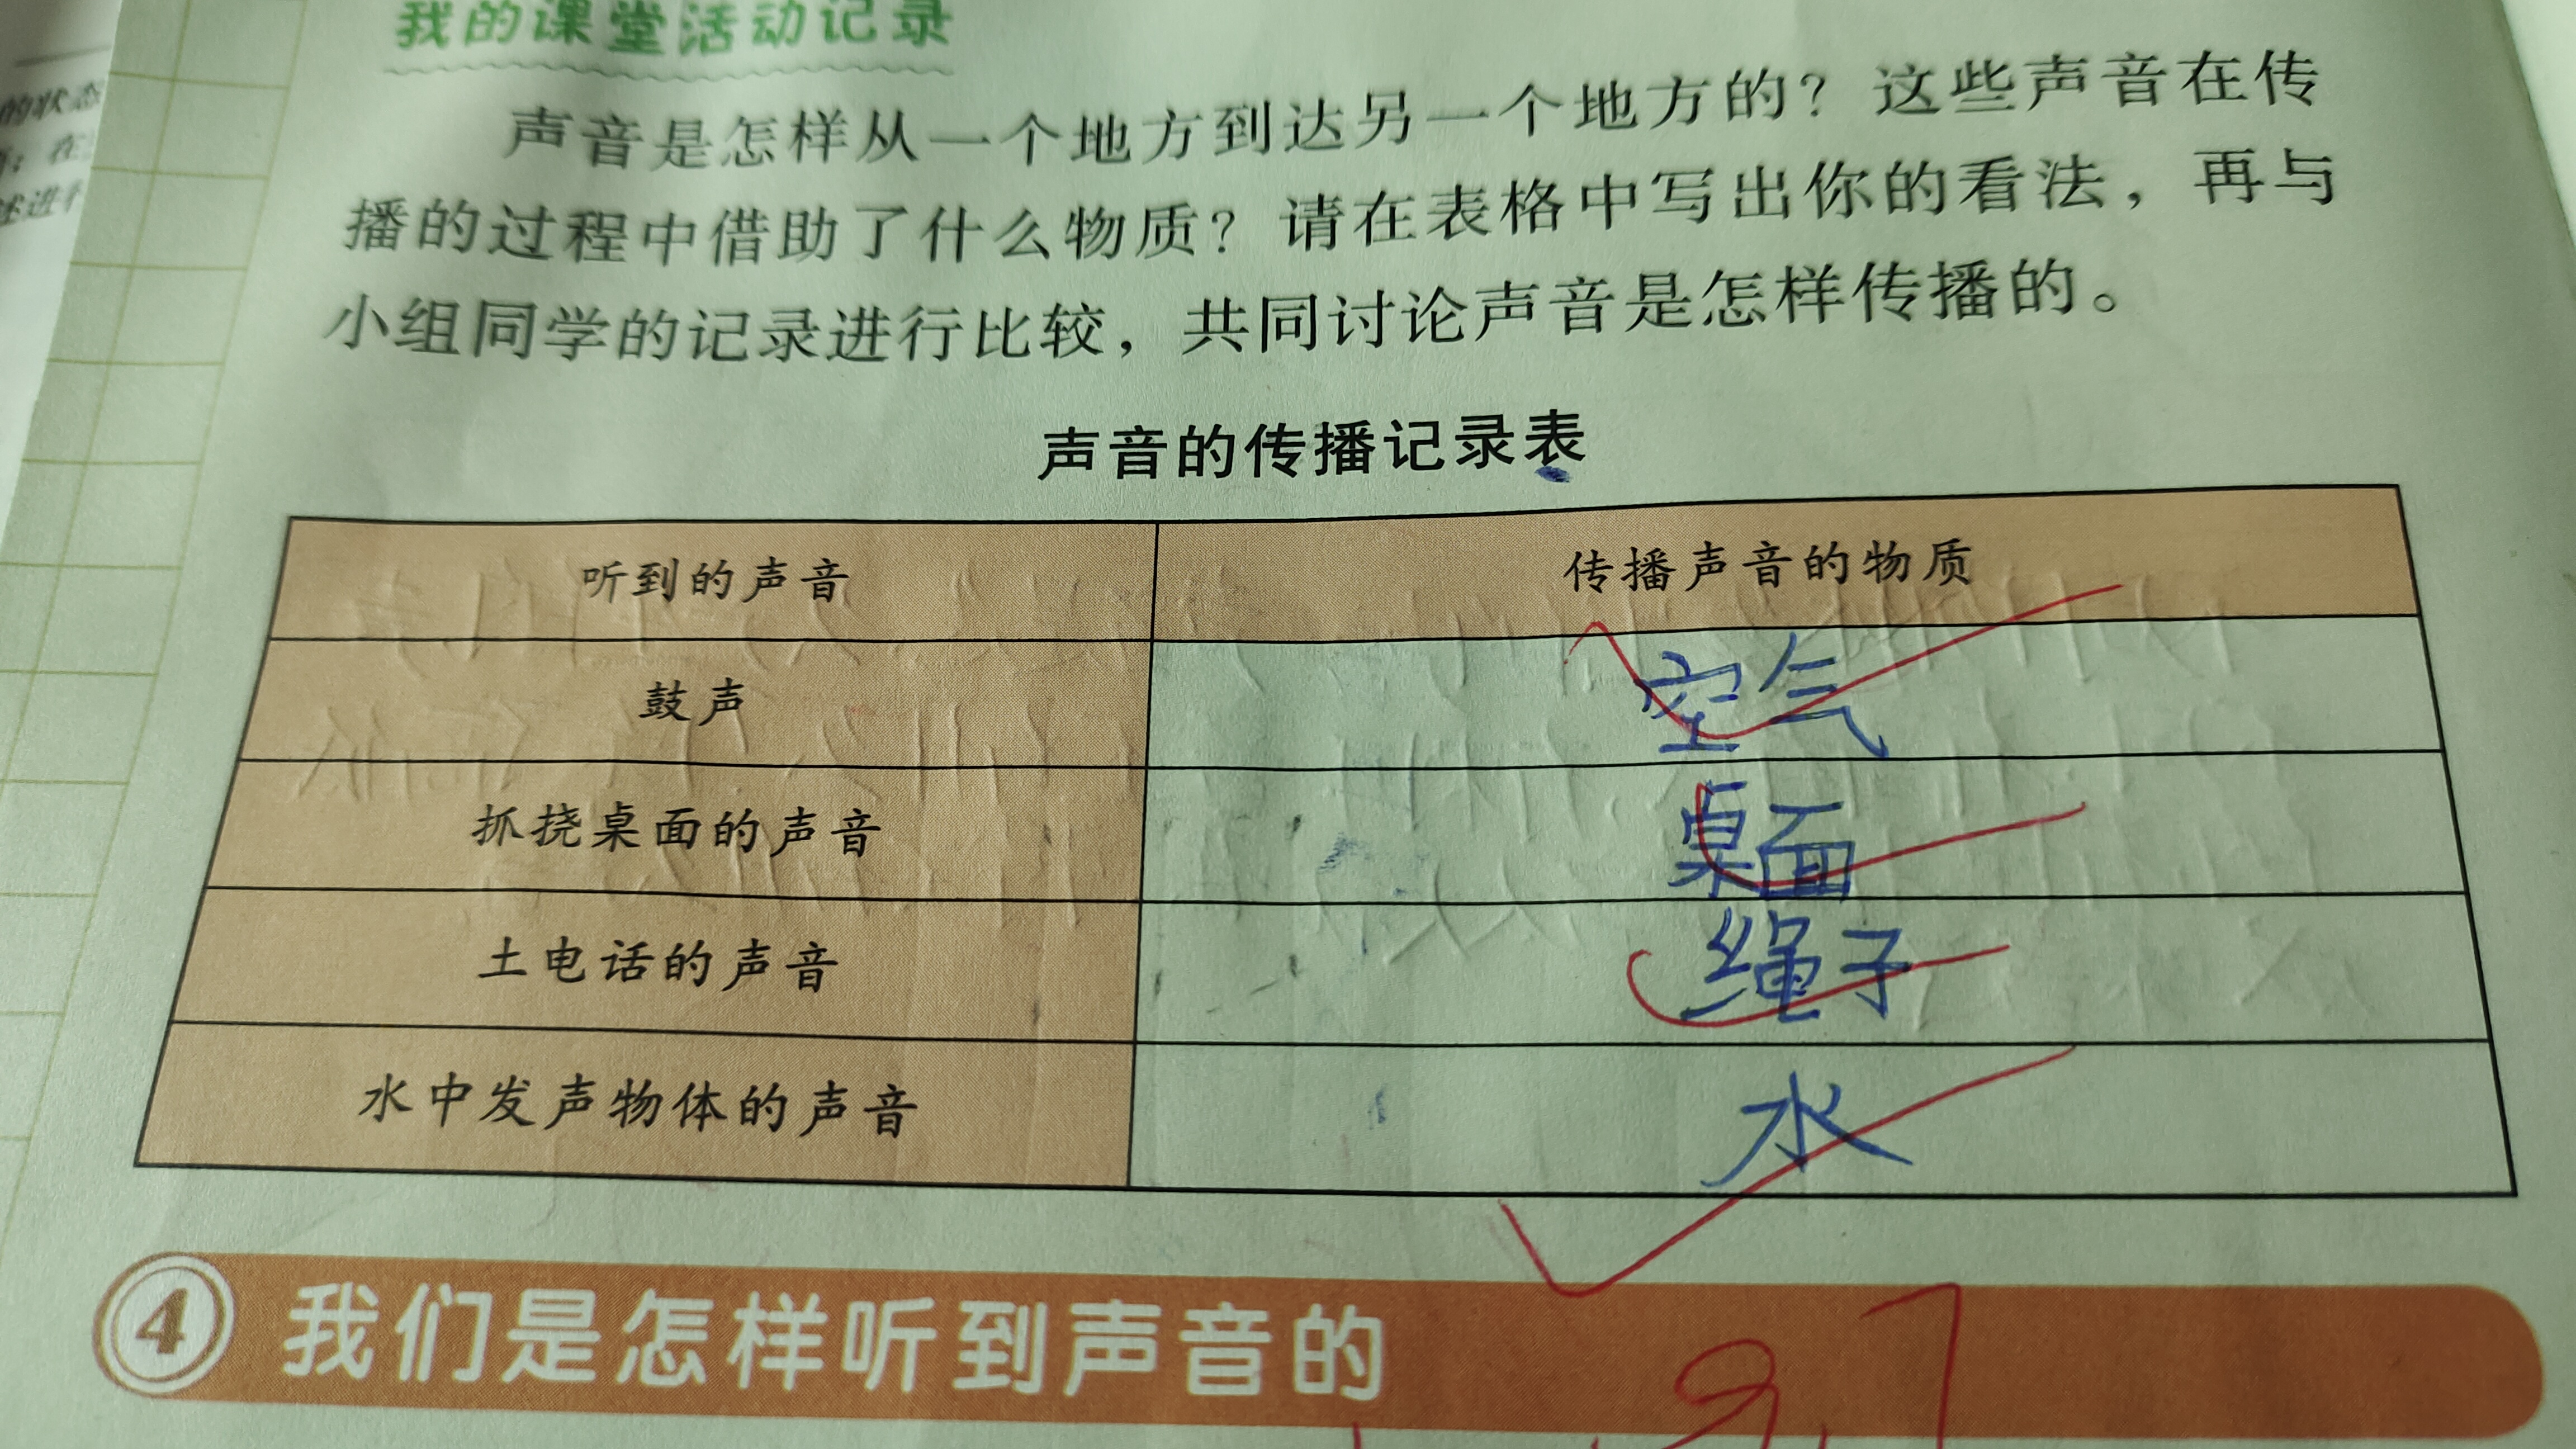 我的课堂活动记录
的状态
在
述进行
声音是怎样从一个地方到达另一个地方的？这些声音在传
播的过程中借助了什么物质？请在表格中写出你的看法，再与
小组同学的记录进行比较，共同讨论声音是怎样传播的。
声音的传播记录表
听到的声音 传播声音的物质
鼓声 空气
抓挠桌面的声音 桌面
土电话的声音 绳子
水中发声物体的声音 水
4 我们是怎样听到声音的